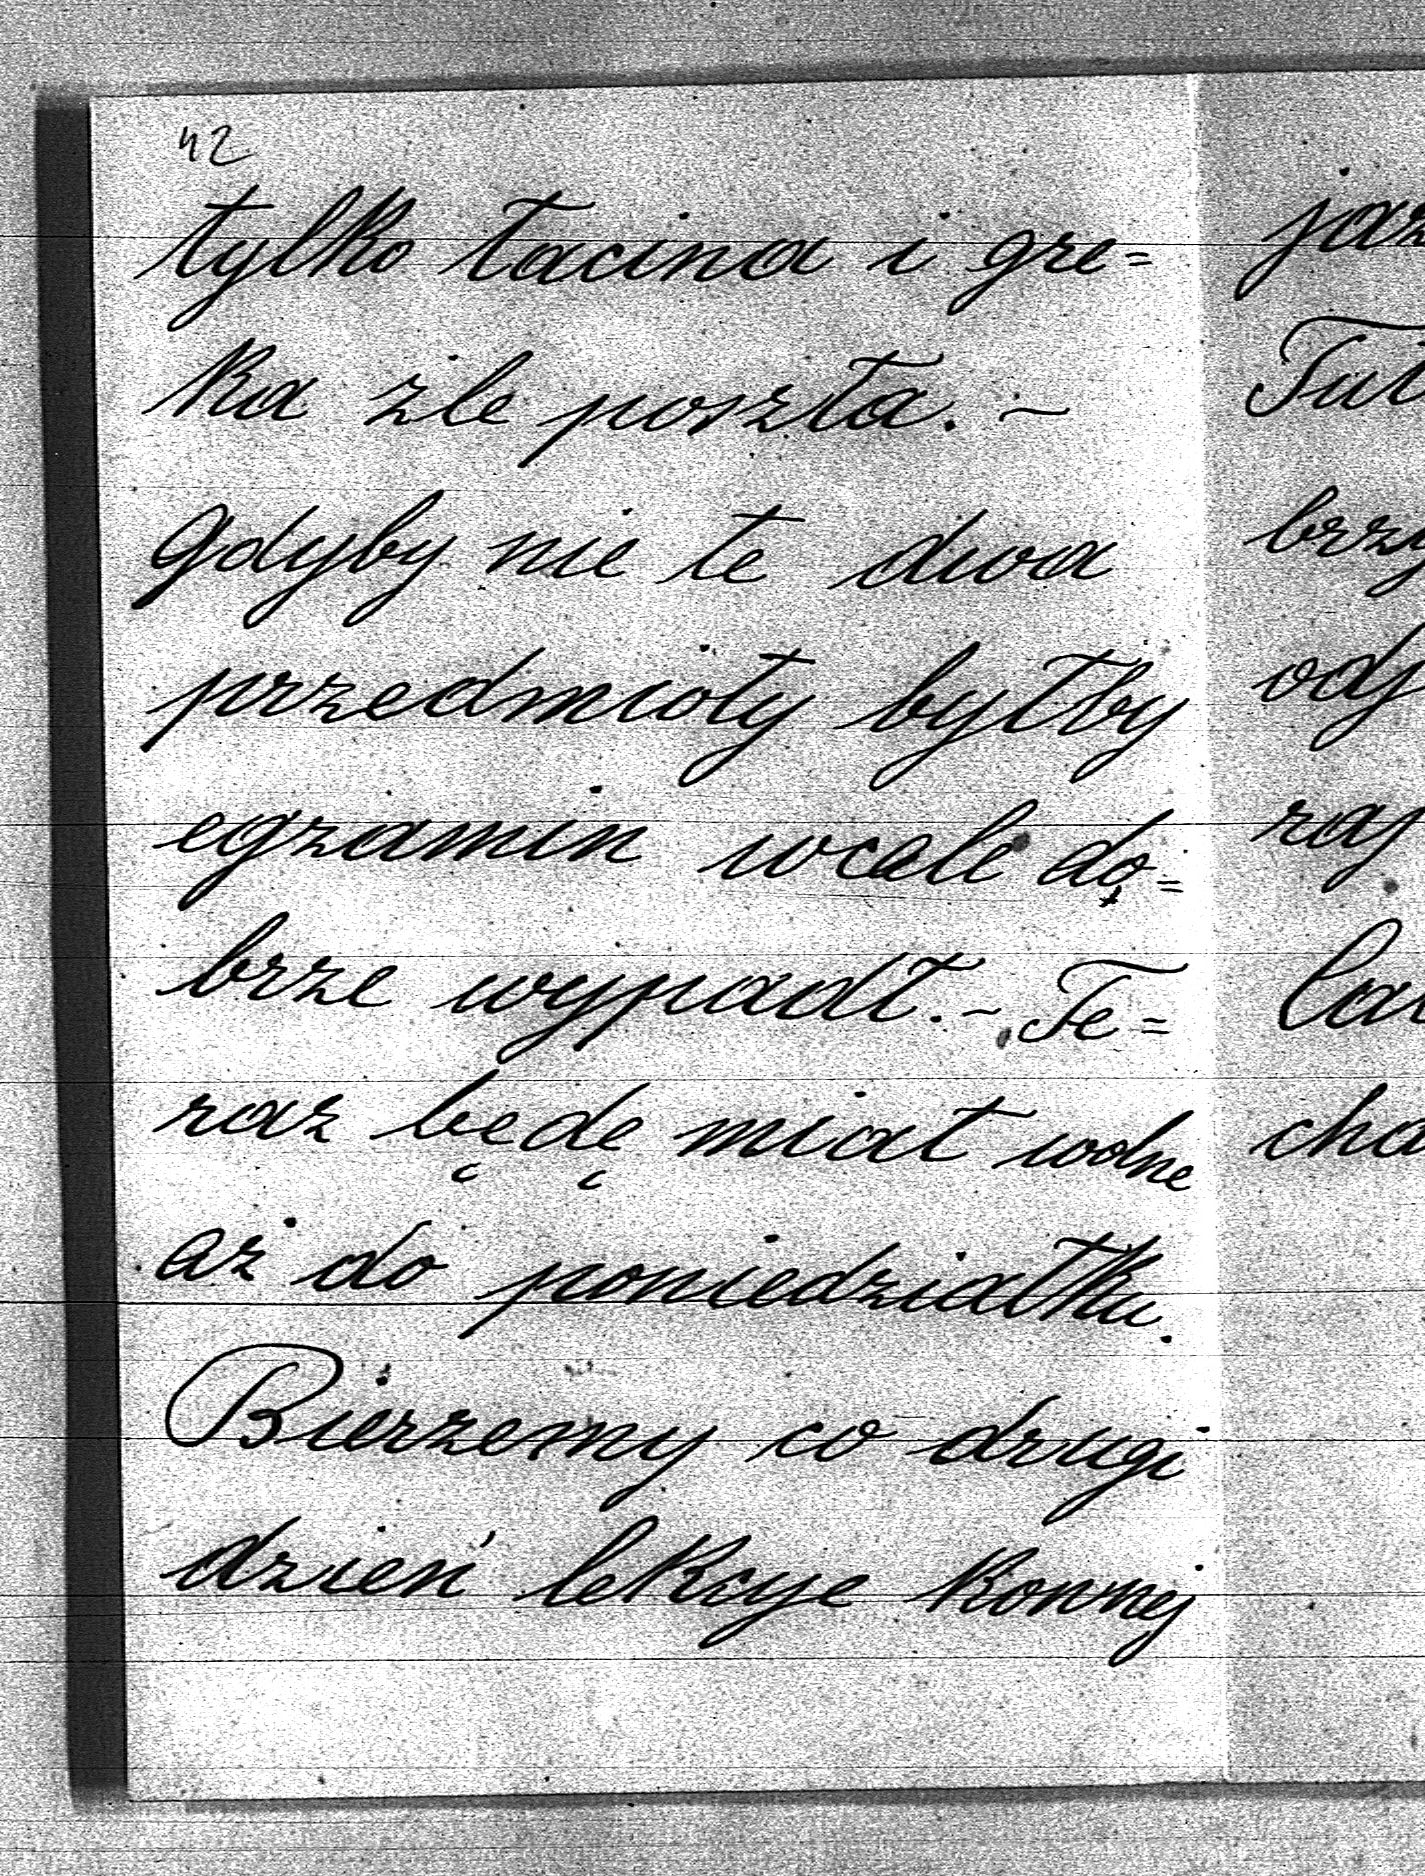 42
tylko łacina i gre=
ka źle poszła. ~
gdyby nie te dwa
przedmioty byłby
egzamin wcale do=
brze wypadł. ~ Te=
raz będę miał wolne
aż do poniedziałku.
Bierzemy co drugi
dzień lekcye konnej